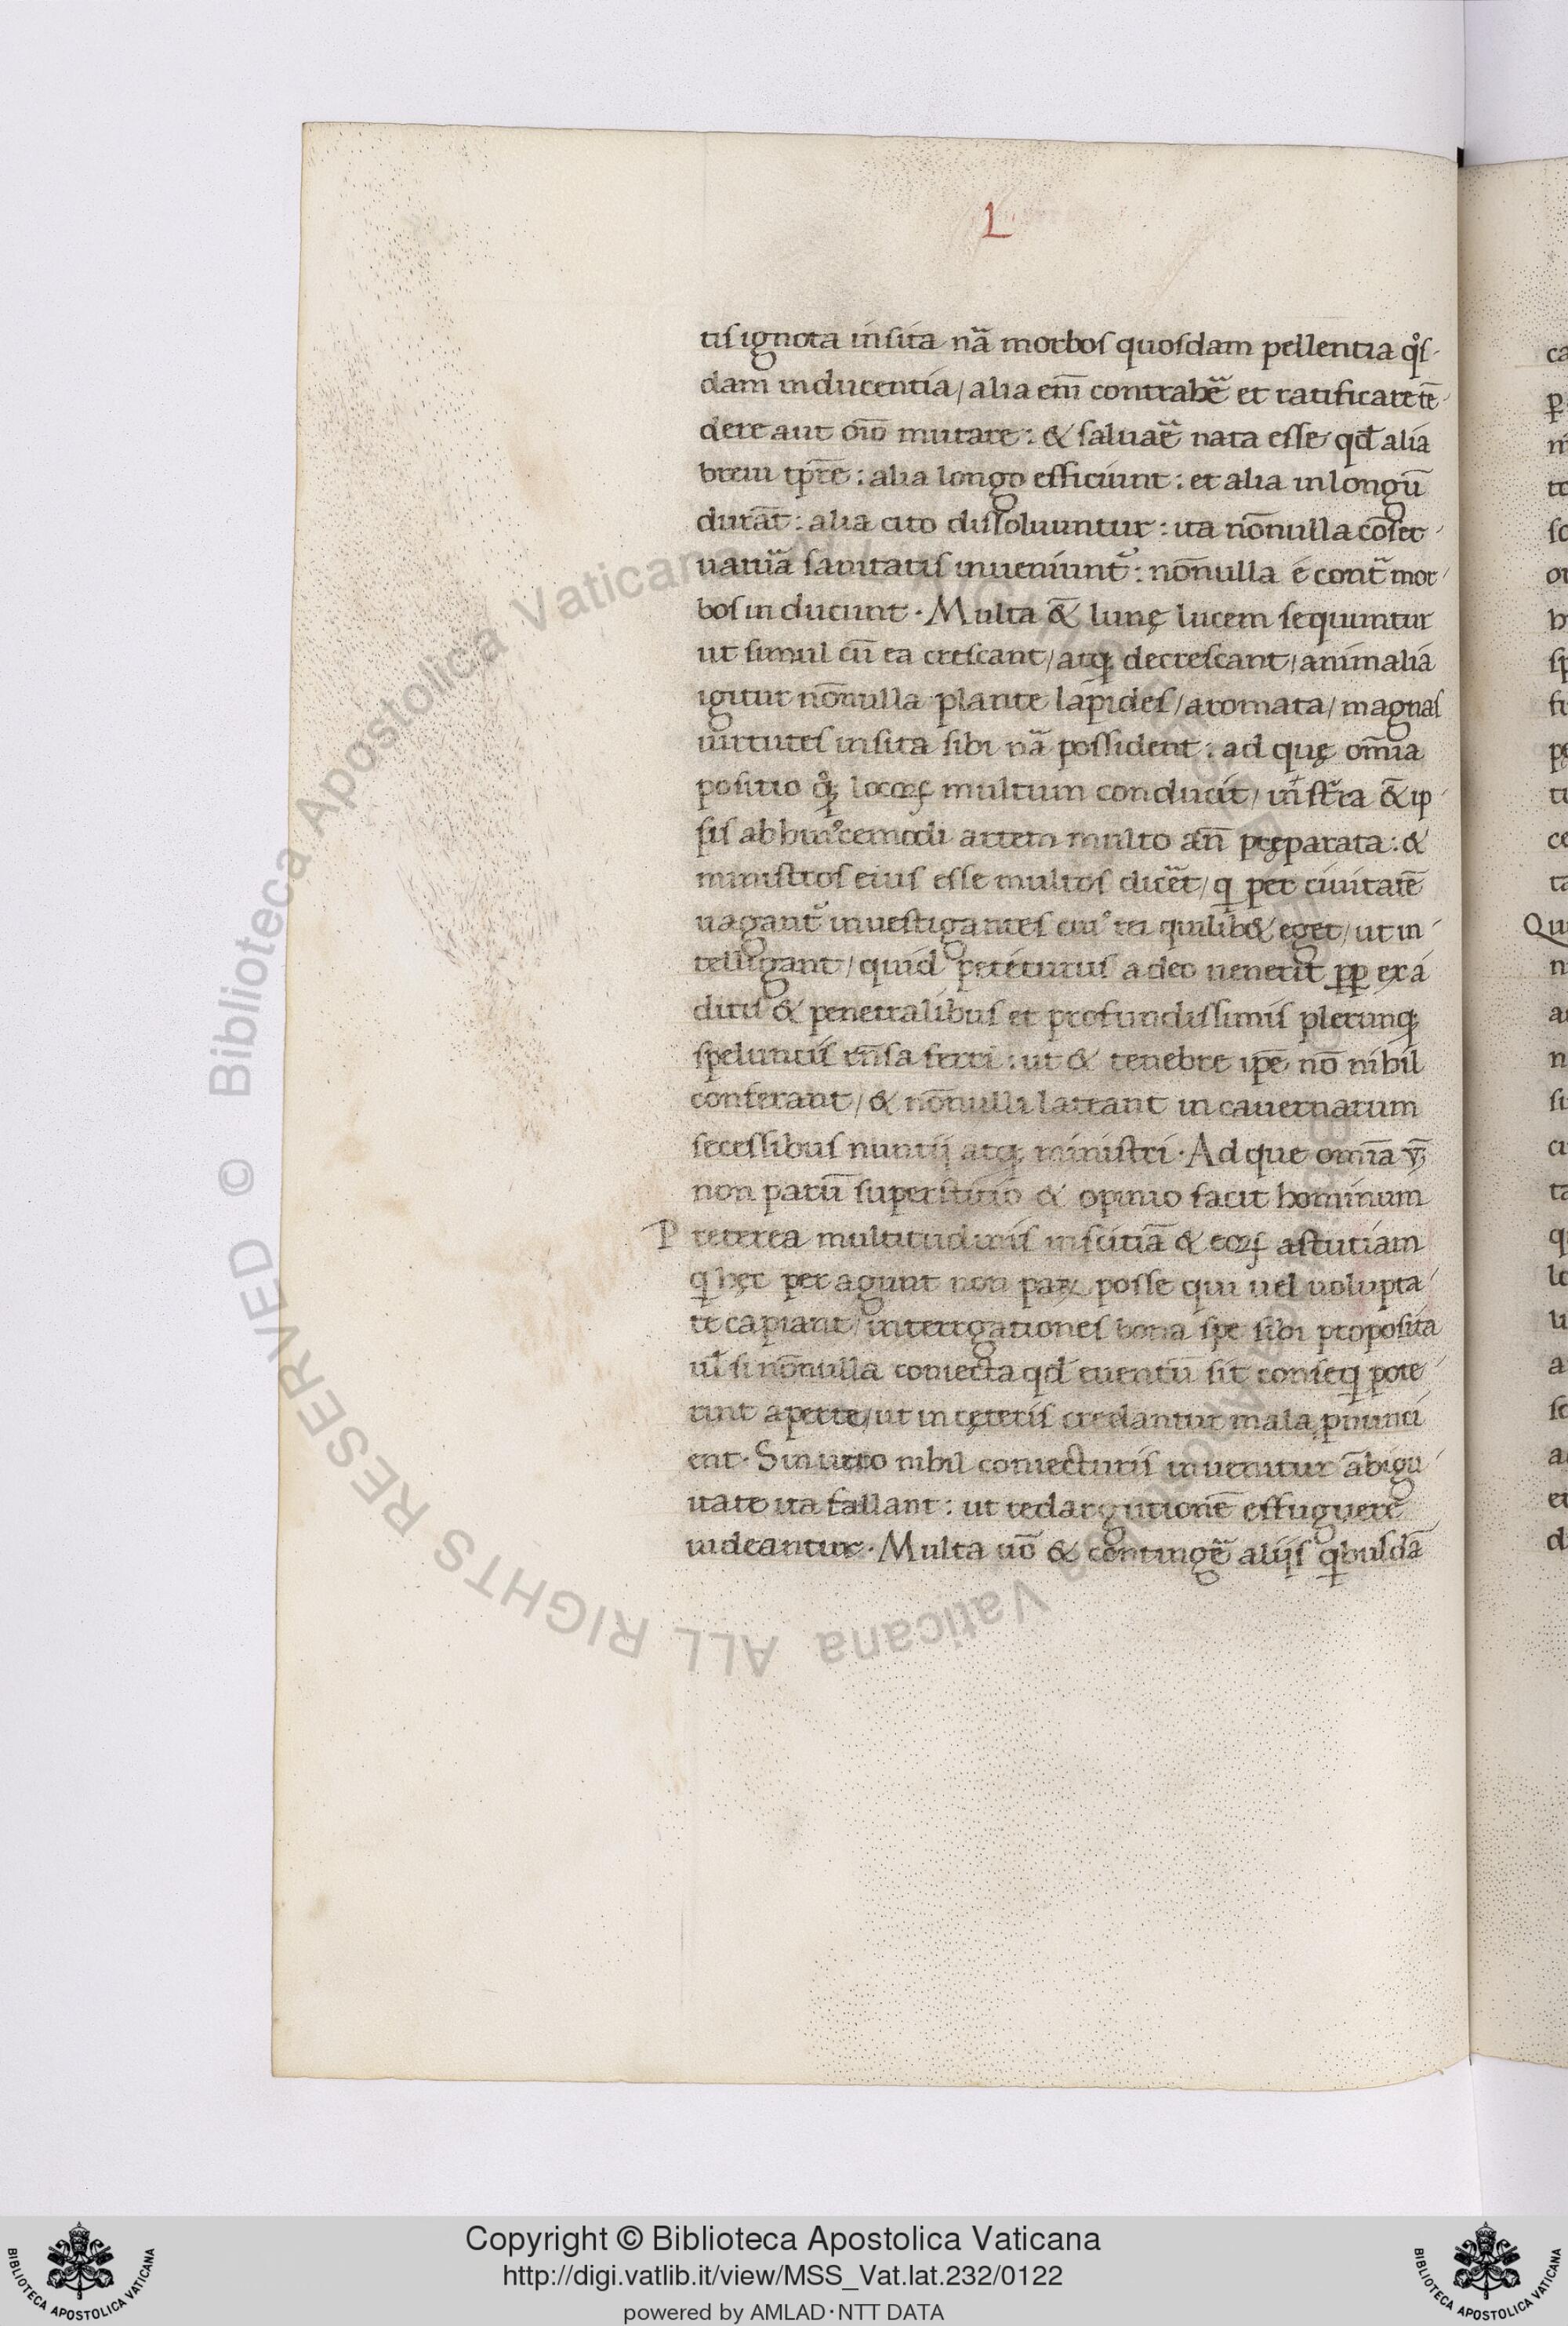 L
tiſ ignota inſita nã morboſ quoſdam pellentia qͦſ-
dam inducentia / alia em̄ contrahẽ et ratificare tē-
dere aut oīo mutare : & ſaluaẽ nata eſſe qd̄ alia
breui tpr̄e : alia longo efficiunt : et alia in longū
durāt : alia cito diſſoluuntur : ita nōnulla cōſer-
uatiũa ſanitatiſ inueniunt᷑ : nōnulla e cont̃ mor-
boſ inducunt · Multa &̄ lunę lucem ſequuntur
ut ſimul cū ea creſcant / atq; decreſcant / animalia
igitur nōnulla plante lapideſ / aromata / magnaſ
uirtuteſ inſita ſibi nã poſſident : ad quę om̄ia
poſitio qͦq; locoꝝ multum conducit / inſt̃ra &̄ ip-
ſiſ ab huiꝰcemodi artem multo an̄ pręparata : &
miniſtroſ eiuſ eſſe multoſ dicẽt / q per ciuitatē
uagant᷑ inueſtiganteſ cuiꝰ rei quilib& eget / ut in-
telligant / quid petituruſ a deo uenerit pp̱ ex a
ditiſ & penetralibuſ et profundiſſimiſ plerunq;
ſpelunciſ rn̄ſa ferri : ut & tenebre ip̄e nō nihil
conferant / & nōnulli lateant in cauernarum
ſeceſſibuſ nuntij atq; miniſtri · Ad que om̄ia
non parū ſuperſtitio & opinio facit hominum
P reterea multitudiniſ inſcitiā & eoꝝ aſtutiam
q hęc peragunt non paꝝ poſſe qui uel uolupta-
te capiant / interrgationeſ bona ſpe ſibi propoſita
ul̄ ſi nōnulla coniecta qd̄ euentū ſit conſeq pote-
rint aperte / ut in ceteriſ credantur mala ꝓnunci
ent · Sin uero nihil coniecturiſ inuenitur ābigu-
itate ita fallant : ut redargutionē effugere
uideantur · Multa uō & contingẽ alijſ qbuſdā
Copyright © Biblioteca Apostolica Vaticana
http://digi.vatlib.it/view/MSS_Vat.lat.232/0122
powered by AMLAD·NTT DATA